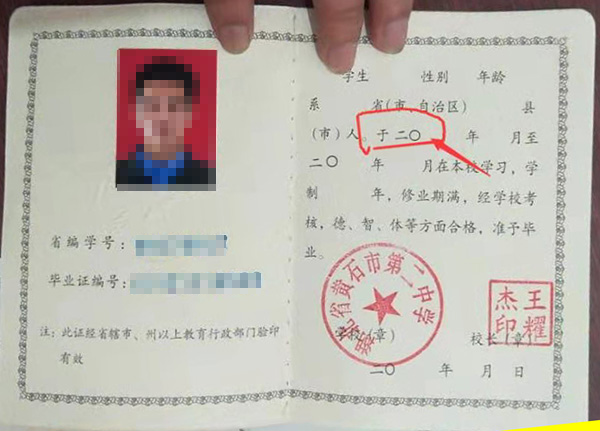 省编学号:
毕业证编号:
注: 此证经省辖市、州以上教育行政部门验印
有效
学生 性别 年龄
系 省(市、自治区) 县
(市)人。于二〇 年 月至
二〇 年 月在本校学习,学
制 年,修业期满,经学校考
核,德、智、体等方面合格,准予毕
业。
湖北省黄石市第二中学
王耀
杰印
学校(章) 校长(章)
二〇 年 月 日